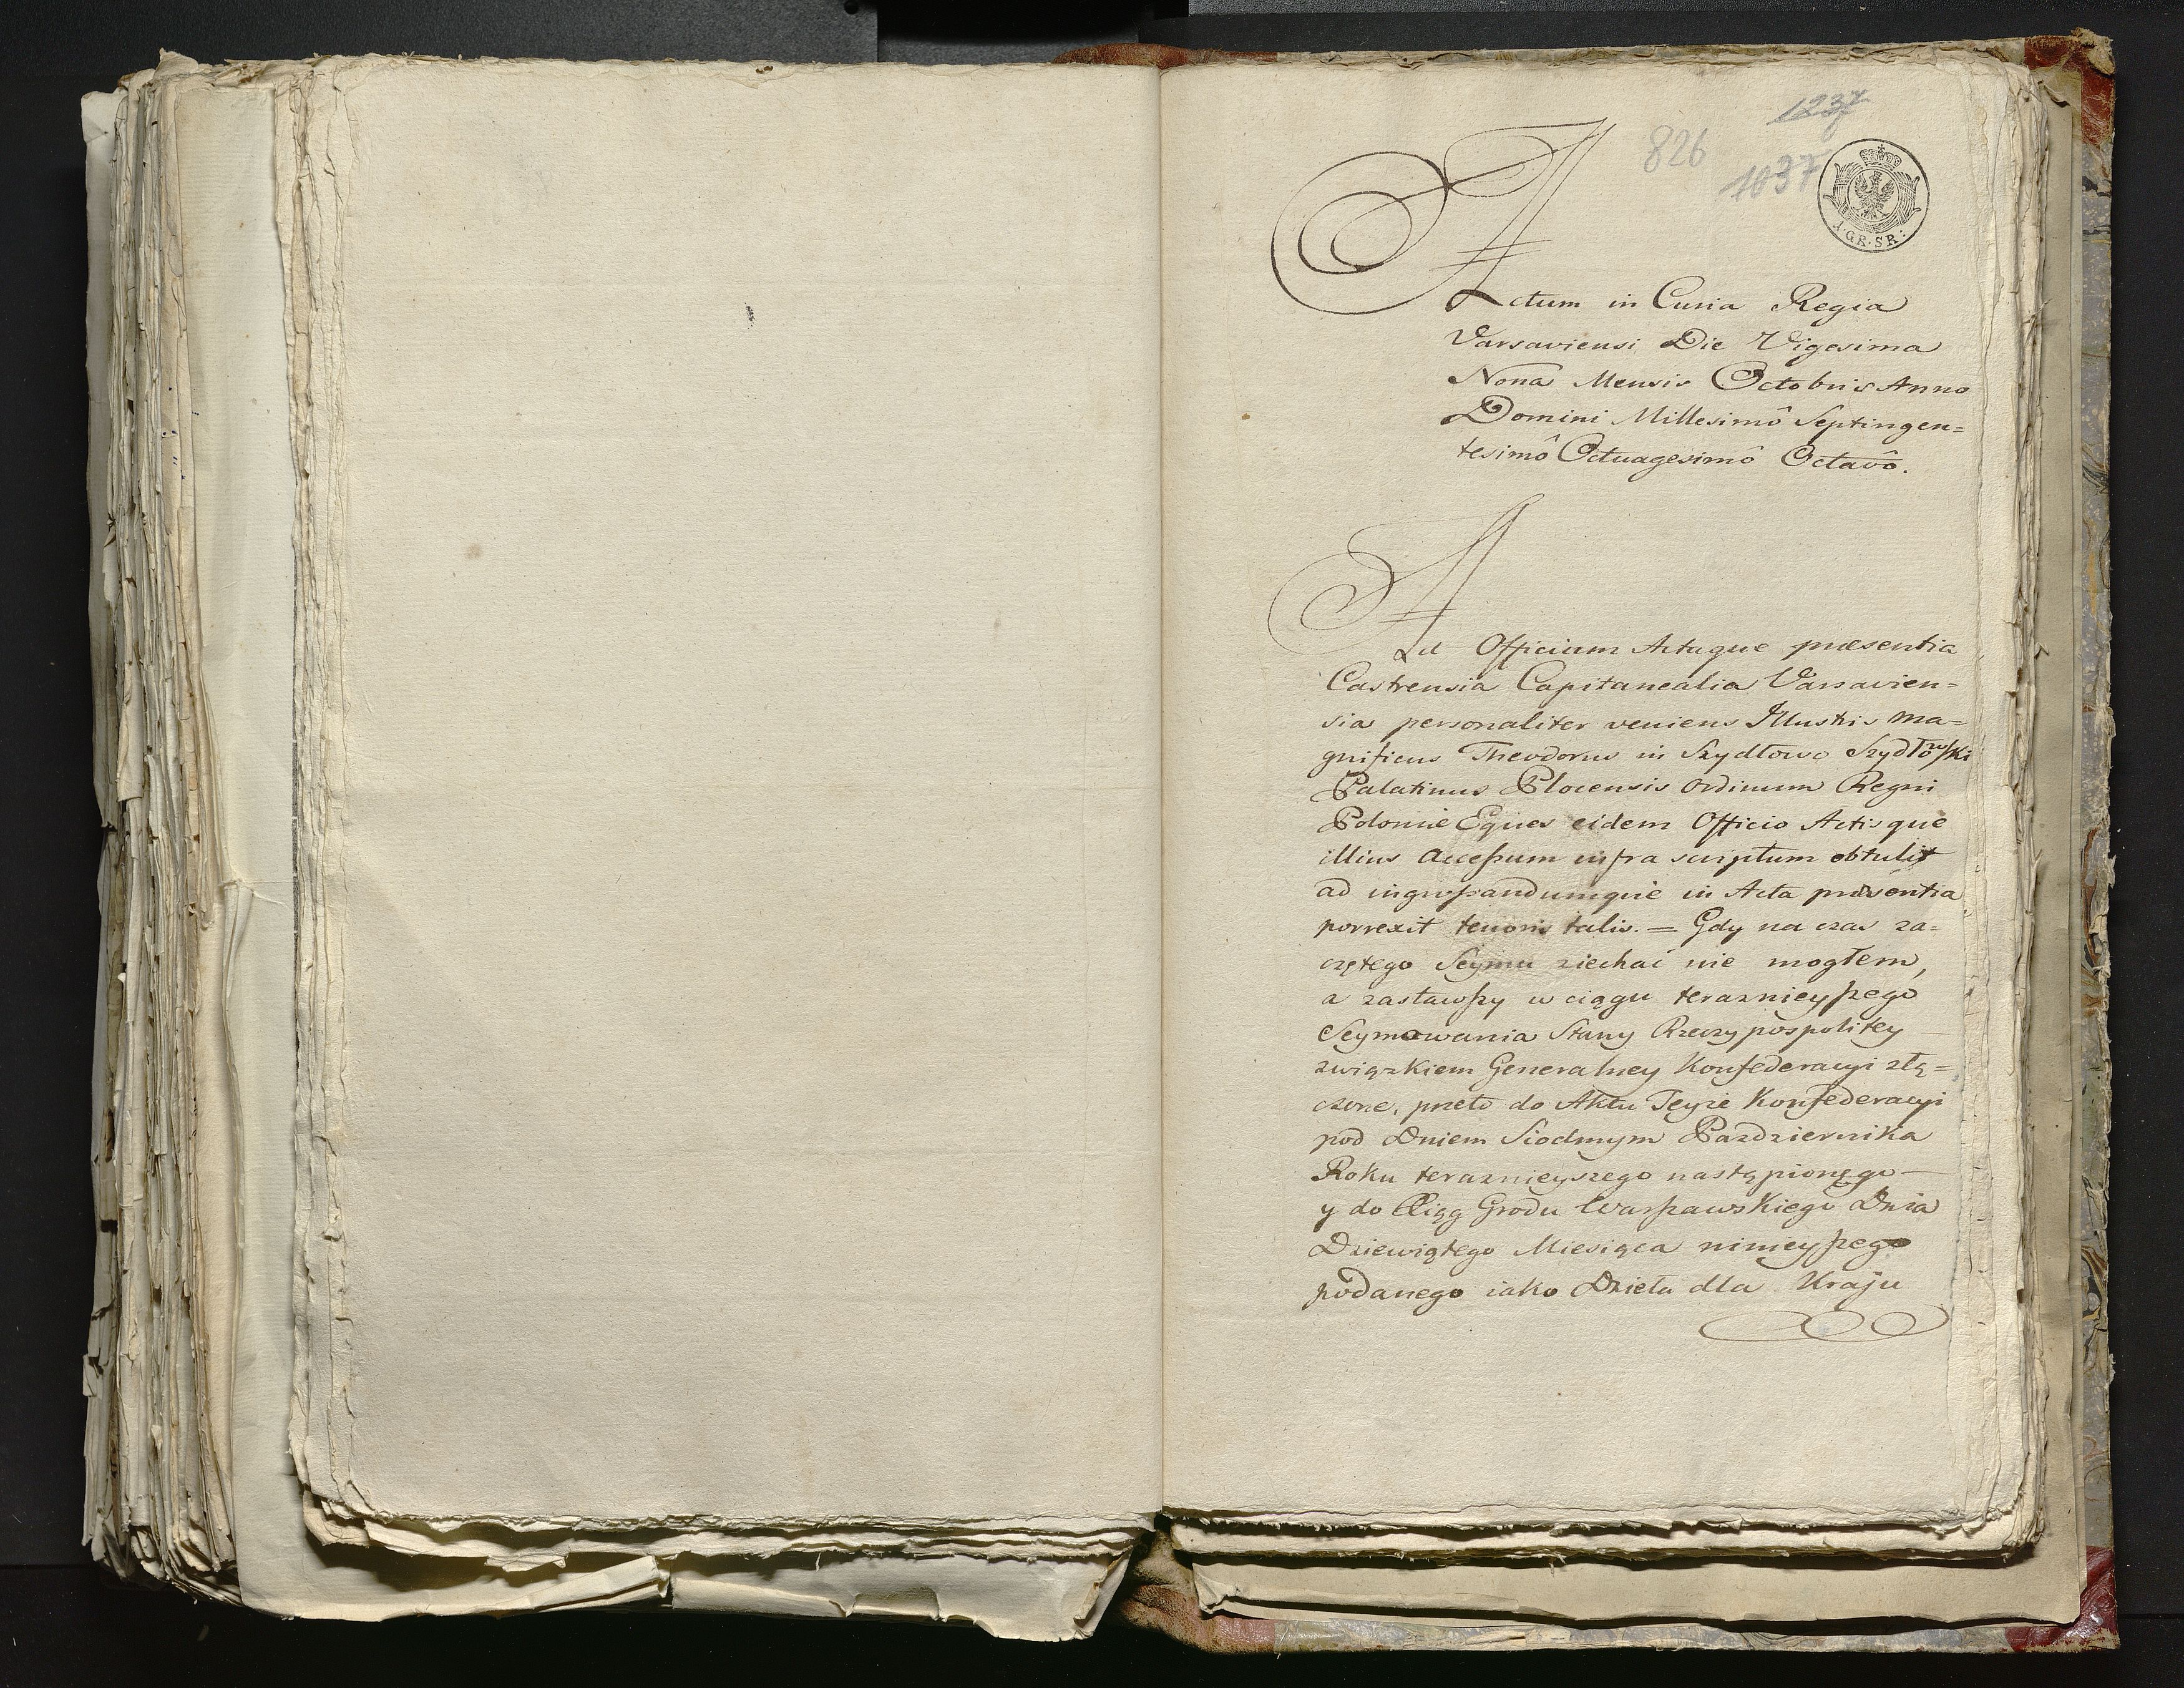 1237
826
1037
4.GR.SR:
Actum in Curia Regia
Varsaviensi Die Vigesima
Nona Mensis Octobris Anno
Domini Millesimô Septingen=
tesimô Octuagesimô Octavô.
Ad Officium Actaque præsentia
Castrensia Capitanealia Varsavien=
sia personaliter veniens Illustris Ma=
gnificus Theodorus in Szydłowo Szydłowski
Palatinus Plocensis Ordinum Regni
Poloniæ Eques eidem Officio Actisque
illius Accessum infra scriptum obtulit
ad ingrossandumque in Acta præsentia
porrexit tenoris talis. = Gdy na czas za=
czętego Seymu ziechać nie mogłem,
a zastawszy w ciągu teraznieyszego
Seymowania Stany Rzeczypospolitey
związkiem Generalney Konfederacyi złą=
czone, przeto do Aktu Teyże Konfederacyi
pod Dniem Siodmym Pazdziernika
Roku teraznieyszego nastąpionego
y do Xiąg Grodu Warszawskiego Dnia
Dziewiątego Miesiąca ninieyszego
podanego iako Dzieła dla Kraju